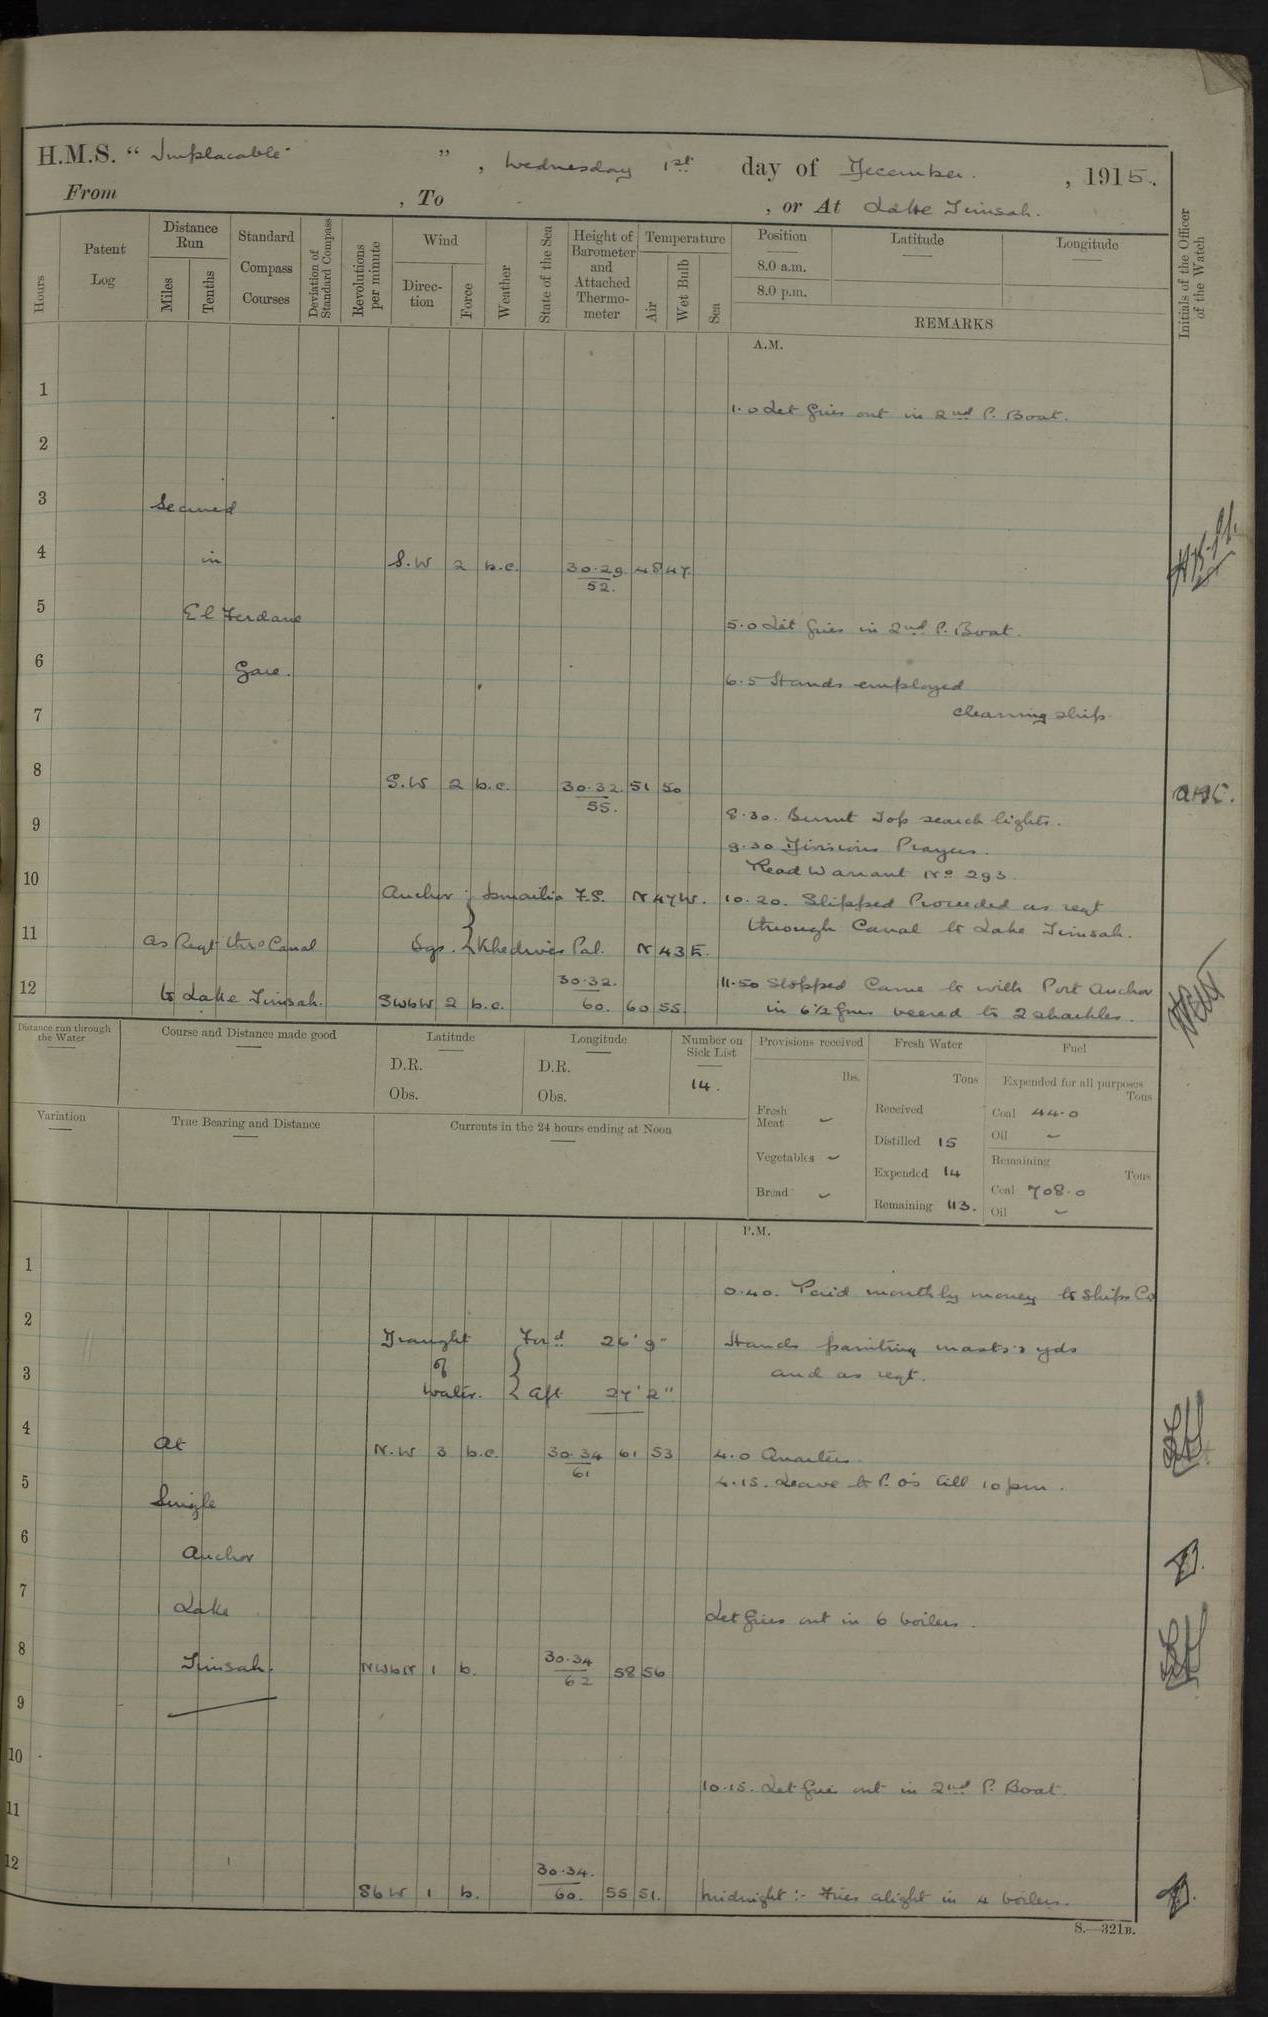 H.M.S. “ Implacable ” , Wednesday 1st day of December. , 1915.
From , To , or At Lake Timsah.
Hours
Patent Log
Distance Run
Miles
Tenths
Standard Compass Courses
Deviation of Standard Compass
Revolutions per minute
Wind
Direction
Force
Weather
State of the Sea
Height of Barometer and Attached Thermometer
Temperature
Air
Wet Bulb
Sea
Position
8.0 a.m.
8.0 p.m.
Latitude
Longitude
REMARKS
Initials of the Officer of the Watch
A.M.
1
1.0 Let fires out in 2nd P. Boat.
2
3 Secured
4 in S.W 2 b.c. 30.29 48 47.
52.
5 El Ferdane 5.0 Lit fires in 2nd P. Boat.
6 Gare. 6.5 Hands employed
7 cleaning ship
8 S.W 2 b.c. 30.32. 51 50
55.
A.H.C.
8.30. Burnt Top search lights.
9
9.30 Divisions Prayers.
Read Warrant No 293
10
Anchor Ismailia F.S. N 47 W. 10.20. Slipped Proceeded as reqt
through Canal to Lake Timsah.
11 as Reqt thro Canal bgs. Khedives Pal. N 43 E.
12 to Lake Timsah. SWbW 2 b.c. 30.32. 60. 60 55.
11.50 Stopped Came to with Port Anchor
in 6½ fms veered to 2 shackles.
Distance run through the Water
Course and Distance made good
Latitude
D.R.
Obs.
Longitude
D.R.
Obs.
Number on Sick List
14.
Provisions received
lbs.
Fresh Meat –
Vegetables –
Bread –
Fresh Water
Tons
Received
Distilled 15
Expended 14
Remaining 113.
Fuel
Expended for all purposes
Tons
Coal 44.0
Oil –
Remaining
Tons
Coal 708.0
Oil –
Variation
True Bearing and Distance
Currents in the 24 hours ending at Noon
P.M.
1
0.40. Paid monthly money to Ships Co
2
Draught For'd 26' 9" Hands painting masts & yds
of and as reqt.
3
Water. Aft 27' 2"
4 At N.W 3 b.c. 30.34 61 53 4.0 Quarters.
61
5 4.15. Leave to P.O's till 10 pm.
Single
6 Anchor
7 Lake Let fires out in 6 boilers.
8 Timsah. NWbN 1 b. 30.34 58 56
62
9
10
10.15. Let fires out in 2nd P. Boat.
11
12
30.34.
SbW 1 b. 60. 55 51. Midnight :- Fires alight in 4 boilers.
S.—321B.